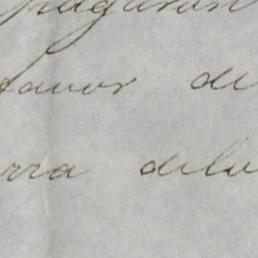 pagaron
favor de
rra delo